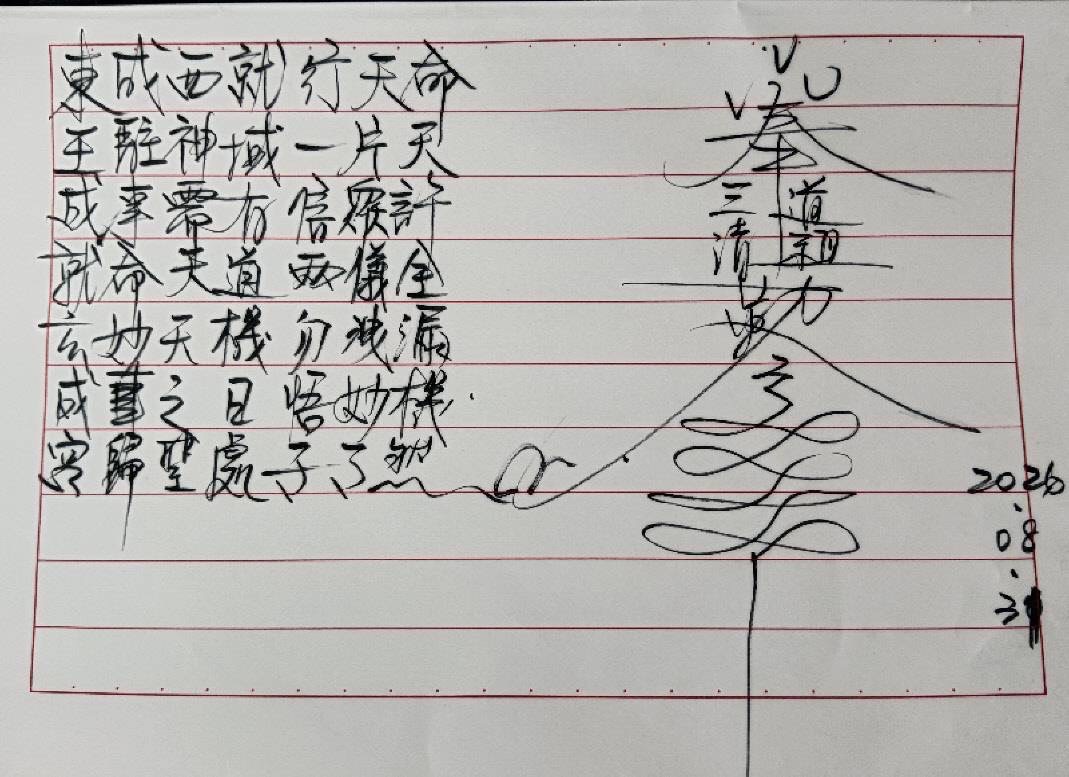 東成西就行天命
王駐神域一片天
成事需有信眾許
就命天道兩儀全
玄妙天機勿洩漏
成書之日悟妙機.
容歸聖處子了然
奉
三清
道祖
助
2026
.
08
.
3